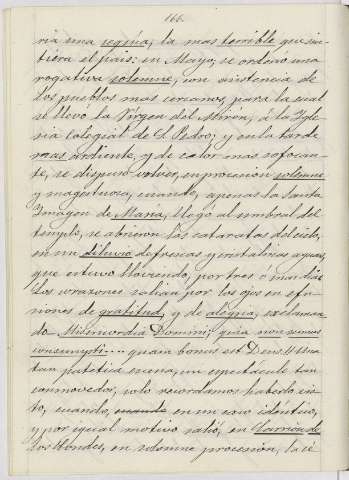 166.
ria una sequía, la mas terrible que sin-
tiera el pais: en Mayo, se ordenó una
rogativa solemne, con asistencia de
los pueblos mas cercanos, para la cual
se llevó la Virgen del Mirón, á la Igle-
sia Colegial de S. Pedro; y en la tarde
mas ardiente, y de calor mas sofocan-
te, se dispuso volver, en procesion solemne
y magestuosa, cuando, apenas la Santa
Imagen de María, llegó al umbral del
templo, se abrieron las cataratas del cielo,
en un diluvio de frescas y cristalinas aguas,
que estuvo lloviendo, por tres ó mas dias.
Los corazones salian por los ojos en efu-
siones de gratitud, y de alegria, exclaman-
do Misericordia Domini; quia non sumus
consumpti.... quam bonus est Deus!! Una
tan patetica escena, un espectáculo tan
conmovedor, solo recordamos haberlo vis-
to, cuando, cuando en un caso idéntico,
y por igual motivo salió, en Carrion de
los Condes, en solemne procesion, la ce